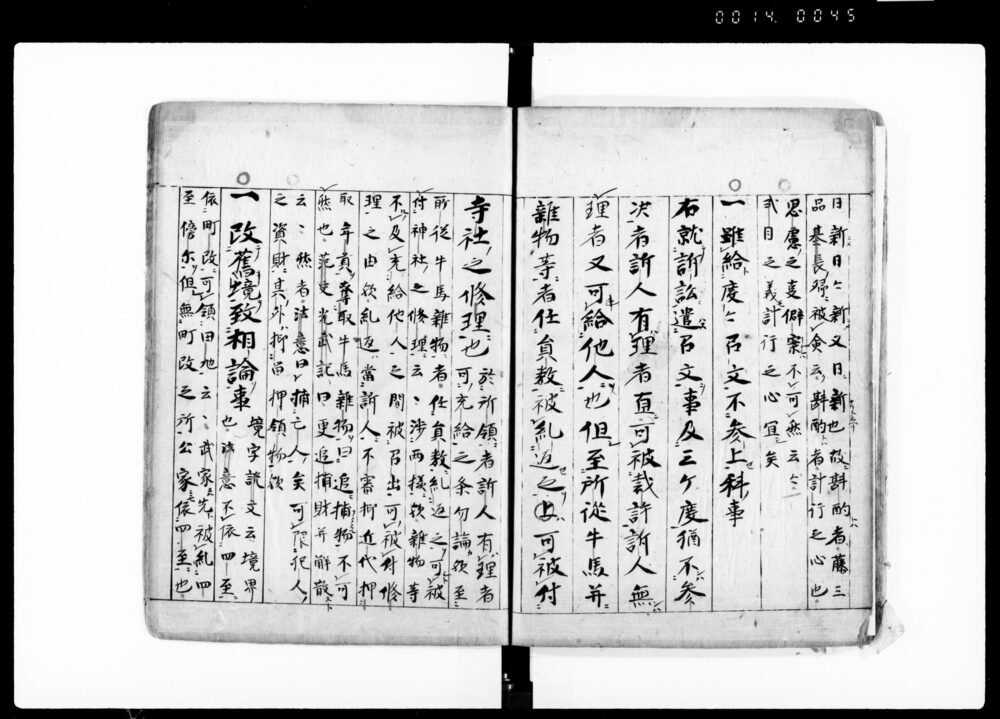 0014. 0045
日新日々新又日新也故斟酌者藤三
品基長帰被僉云斟酌者計行之心也
思慮之叓僻案不可然云々
式目之義計行之心宜矣
一 雖給度々召文不参上科事
右就訴訟遣召文事及三ケ度猶不参
决者訴人有理者直可被裁許訴人無
理者又可給他人也但至所従牛馬并
雑物等者任員数被糺返之上可被付
寺社之修理也 於所領者訴人有理者
可充給之条勿論欤至
所従牛馬雑物者任員数糺返之可被
付神社之修理云々渉両様欤雑物寺
不及充給他人之間被召出可被付修
理之由欤糺返當訴人不審抑近代押
取年貢奪取牛馬雑物曰追捕物不可
然也范史光武記曰更追捕財并散
云々然者法意曰捕亡人矣可限犯人
之資財其外抑留押領物欤
一 改舊境致相論事 境字説文云境界
也法意不依四至
依町改可領田地云々武家先被糺四
至傍尓但無町改之所公家依四至也